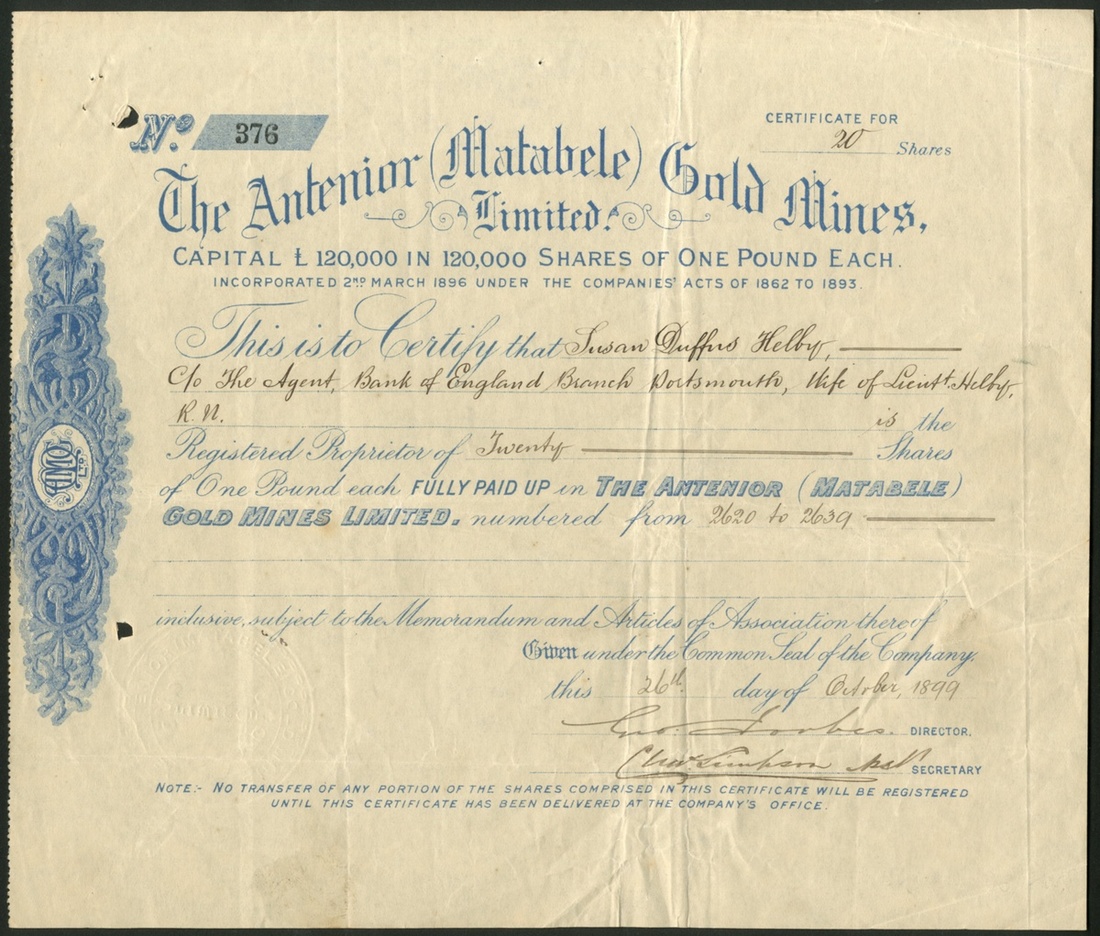 No. 376
CERTIFICATE FOR
20 Shares
The Antenior (Matabele) Gold Mines,
Limited.
CAPITAL £ 120,000 IN 120,000 SHARES OF ONE POUND EACH.
INCORPORATED 2ND MARCH 1896 UNDER THE COMPANIES' ACTS OF 1862 TO 1893.
This is to Certify that Susan Duffus Helby,
C/o The Agent, Bank of England Branch Portsmouth, Wife of Lieutt. Helby,
R.N. is the
Registered Proprietor of Twenty Shares
of One Pound each FULLY PAID UP in THE ANTENIOR (MATABELE)
GOLD MINES LIMITED. numbered from 2620 to 2639
inclusive, subject to the Memorandum and Articles of Association thereof
Given under the Common Seal of the Company,
this 26th. day of October, 1899
Geo: Forbes. DIRECTOR.
Simpson SECRETARY
NOTE:- NO TRANSFER OF ANY PORTION OF THE SHARES COMPRISED IN THIS CERTIFICATE WILL BE REGISTERED
UNTIL THIS CERTIFICATE HAS BEEN DELIVERED AT THE COMPANY'S OFFICE.
LTD.